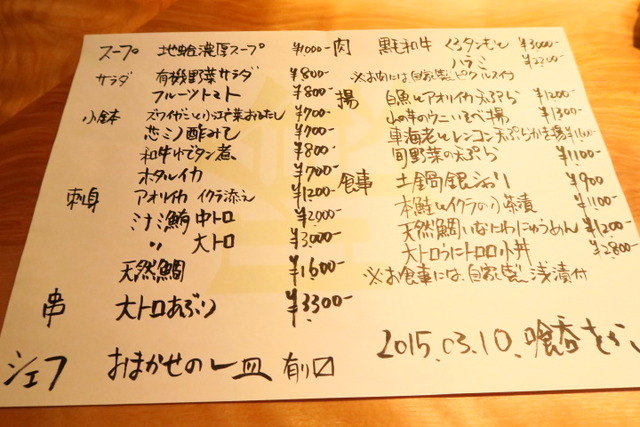 スープ 地蛤濃厚スープ ¥1000-
サラダ 有機野菜サラダ ¥800-
フルーツトマト ¥800-
小鉢 ズワイガニと小松菜おひたし ¥700-
芯ミノ酢みそ ¥700-
和牛ゆでタン煮 ¥800-
ホタルイカ ¥700-
刺身 アオリイカ イクラ添え ¥1200-
汁鮪 中トロ ¥2000-
〃 大トロ ¥3000-
天然鯛 ¥1600-
串 大トロあぶり ¥3300-
シェフ おまかせの一皿 有り〼
肉 黒毛和牛 くろタンもと ¥3000-
ハラミ
※お肉には自家製ピクルス付
揚 白魚とアオリイカ天ぷら ¥1200-
ウニいそべ揚 ¥1300-
車海老とレンコン天ぷら
旬野菜の天ぷら ¥1100-
食事 土鍋銀しゃり ¥900
本鮭とイクラのお茶漬 ¥1100-
天然鯛いなにわにゅうめん ¥1200-
大トロうにトロロ小丼 ¥2800-
※お食事には、自家製浅漬付
2015.03.10. 喰呑